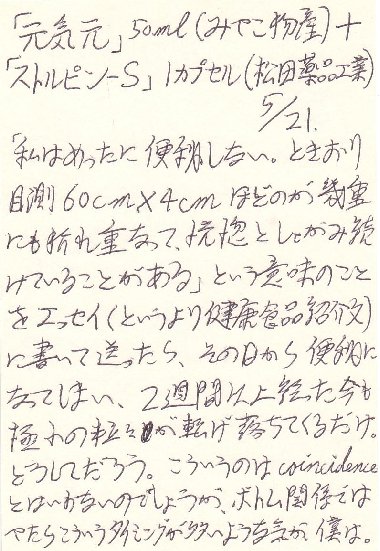 「元気元」50ml(みやこ物産)+
「ストルピンーS」1カプセル(松田薬品工業)
5/21.
「私はめったに便秘しない。ときおり
目測60cm×4cmほどのが幾重
にも折れ重なって、恍惚としゃがみ続
けていることがある」という意味のこと
をエッセイ(というより健康食品紹介文)
に書いて送ったら、その日から便秘に
なってしまい、2週間以上経った今も
極小の粒々が転げ落ちてくるだけ。
どうしてだろう。こういうのはcoincidence
とはいわないのでしょうが、ボトム関係では
やたらこういうタイミングが多いような気が、僕は。